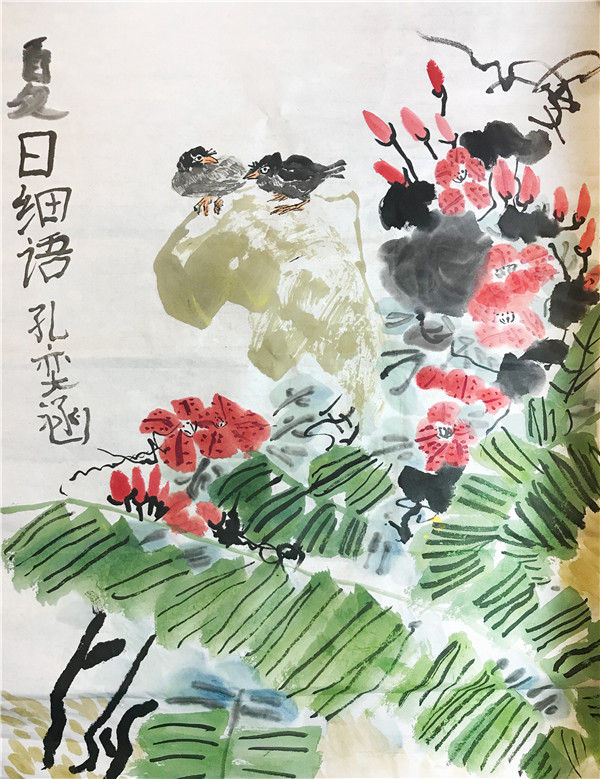 夏日细语
孔奕涵